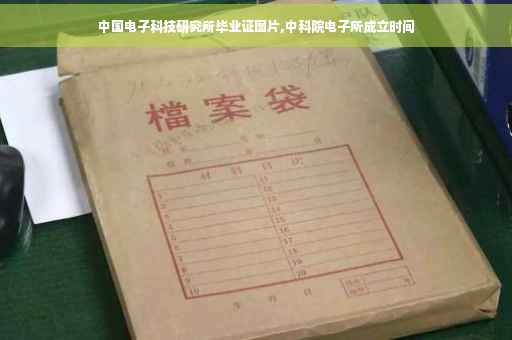 中国电子科技研究所毕业证图片,中科院电子所成立时间
檔案袋
材料目次
1 11
2 12
3 13
4 14
5 15
6 16
7 17
8 18
9 19
10 20
年 月 日